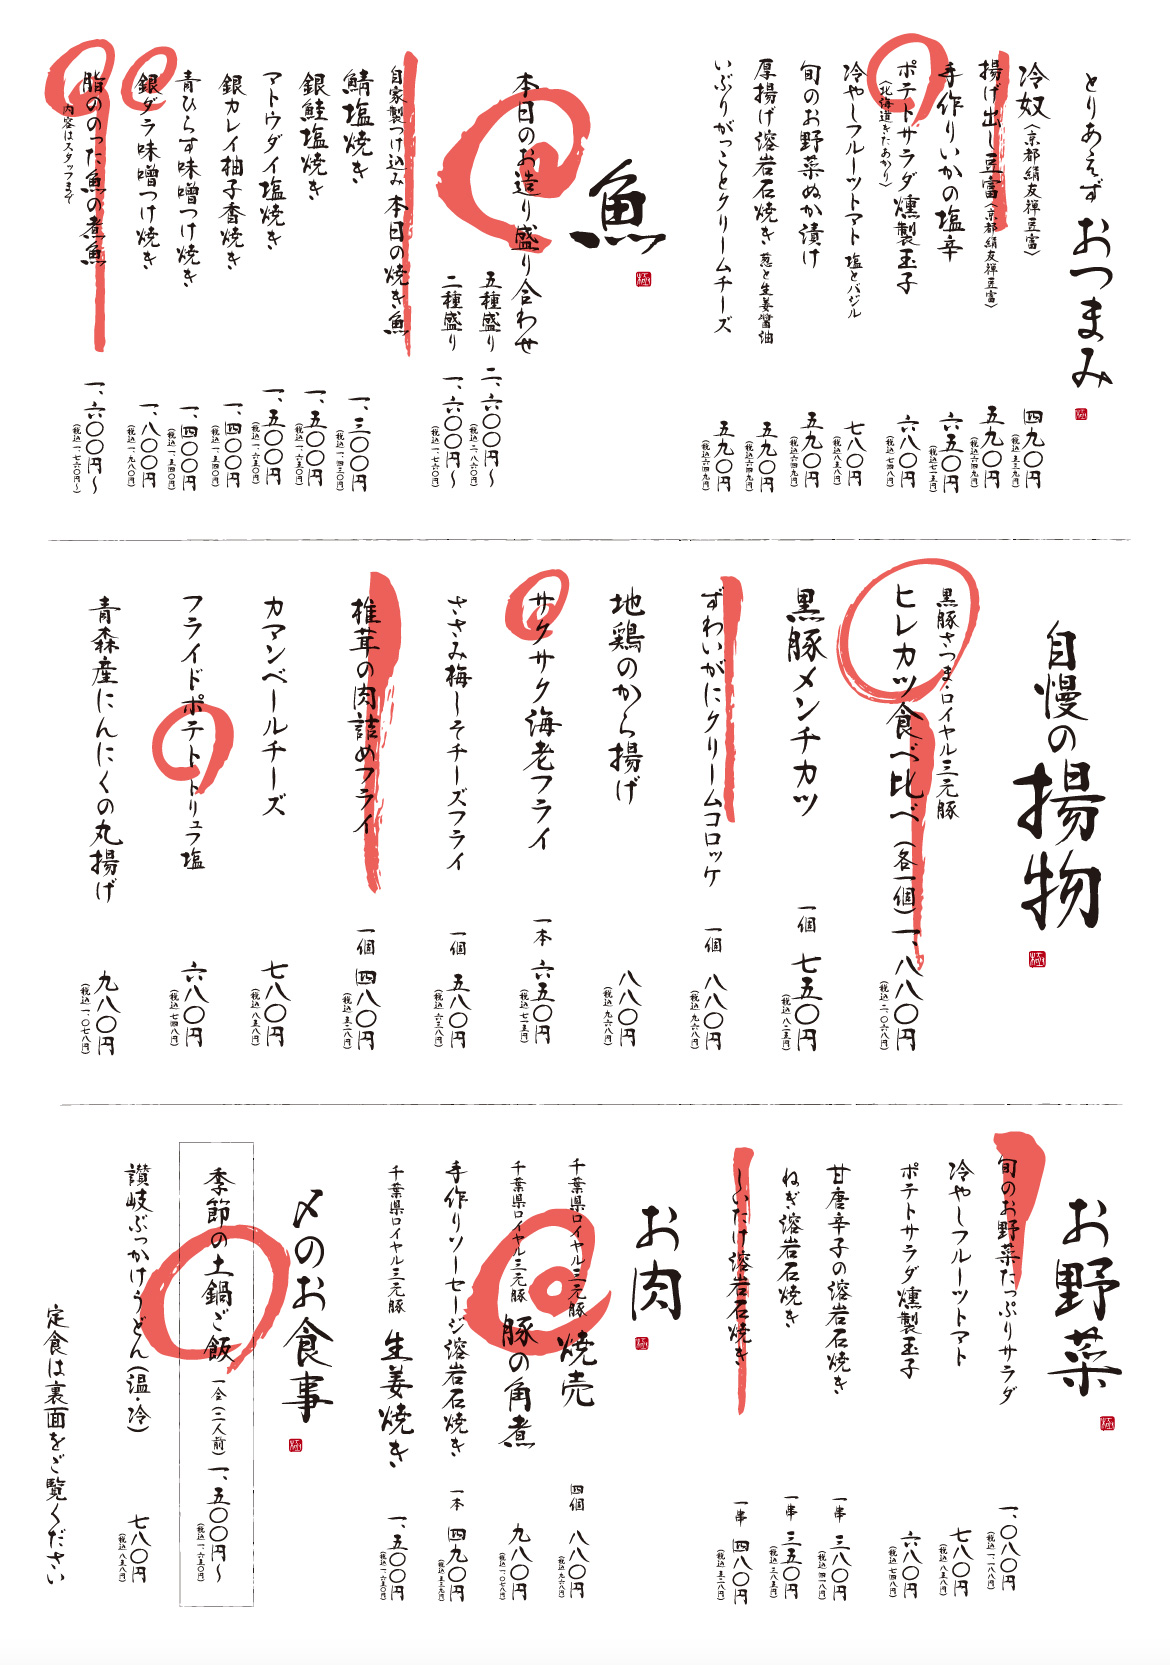 とりあえず おつまみ
冷奴〈京都絹友禅豆富〉 四九〇円
(税込 五三九円)
揚げ出し豆富〈京都絹友禅豆富〉 五九〇円
(税込 六四九円)
手作りいかの塩辛 六五〇円
(税込 七一五円)
ポテトサラダ燻製玉子 六八〇円
〈北海道きたあかり〉
(税込 七四八円)
冷やしフルーツトマト 塩とバジル 七八〇円
(税込 八五八円)
旬のお野菜ぬか漬け 五九〇円
(税込 六四九円)
厚揚げ溶岩石焼き 葱と生姜醤油 五九〇円
(税込 六四九円)
いぶりがっことクリームチーズ 五九〇円
(税込 六四九円)
魚
本日のお造り盛り合わせ
五種盛り 二、六〇〇円〜
(税込 二、八六〇円)
二種盛り 一、六〇〇円〜
(税込 一、七六〇円)
自家製つけ込み 本日の焼き魚
鯖塩焼き 一、三〇〇円
(税込 一、四三〇円)
銀鮭塩焼き 一、五〇〇円
(税込 一、六五〇円)
マトウダイ塩焼き 一、五〇〇円
(税込 一、六五〇円)
銀カレイ柚子香焼き 一、四〇〇円
(税込 一、五四〇円)
青ひらす味噌つけ焼き 一、四〇〇円
(税込 一、五四〇円)
銀ダラ味噌つけ焼き 一、八〇〇円
(税込 一、九八〇円)
脂ののった魚の煮魚 一、六〇〇円〜
内容はスタッフまで
(税込 一、七六〇円〜)
自慢の揚物
黒豚さつま・ロイヤル三元豚
ヒレカツ食べ比べ(各一個) 一、八八〇円
(税込 二、〇六八円)
黒豚メンチカツ 一個 七五〇円
(税込 八二五円)
ずわいがにクリームコロッケ 一個 八八〇円
(税込 九六八円)
地鶏のから揚げ 八八〇円
(税込 九六八円)
サクサク海老フライ 一本 六五〇円
(税込 七一五円)
ささみ梅しそチーズフライ 一個 五八〇円
(税込 六三八円)
椎茸の肉詰めフライ 一個 四八〇円
(税込 五二八円)
カマンベールチーズ 七八〇円
(税込 八五八円)
フライドポテト トリュフ塩 六八〇円
(税込 七四八円)
青森産にんにくの丸揚げ 九八〇円
(税込 一、〇七八円)
お野菜
旬のお野菜たっぷりサラダ 一、〇八〇円
(税込 一、一八八円)
冷やしフルーツトマト 七八〇円
(税込 八五八円)
ポテトサラダ燻製玉子 六八〇円
(税込 七四八円)
甘唐辛子の溶岩石焼き 一串 三八〇円
(税込 四一八円)
ねぎ溶岩石焼き 一串 三五〇円
(税込 三八五円)
しいたけ溶岩石焼き 一串 四八〇円
(税込 五二八円)
お肉
千葉県ロイヤル三元豚 焼売 四個 八八〇円
(税込 九六八円)
千葉県ロイヤル三元豚 豚の角煮 九八〇円
(税込 一、〇七八円)
手作りソーセージ溶岩石焼き 一本 四九〇円
(税込 五三九円)
千葉県ロイヤル三元豚 生姜焼き 一、五〇〇円
(税込 一、六五〇円)
〆のお食事
季節の土鍋ご飯 一合(二人前) 一、五〇〇円〜
(税込 一、六五〇円)
讃岐ぶっかけうどん(温・冷) 七八〇円
(税込 八五八円)
定食は裏面をご覧ください